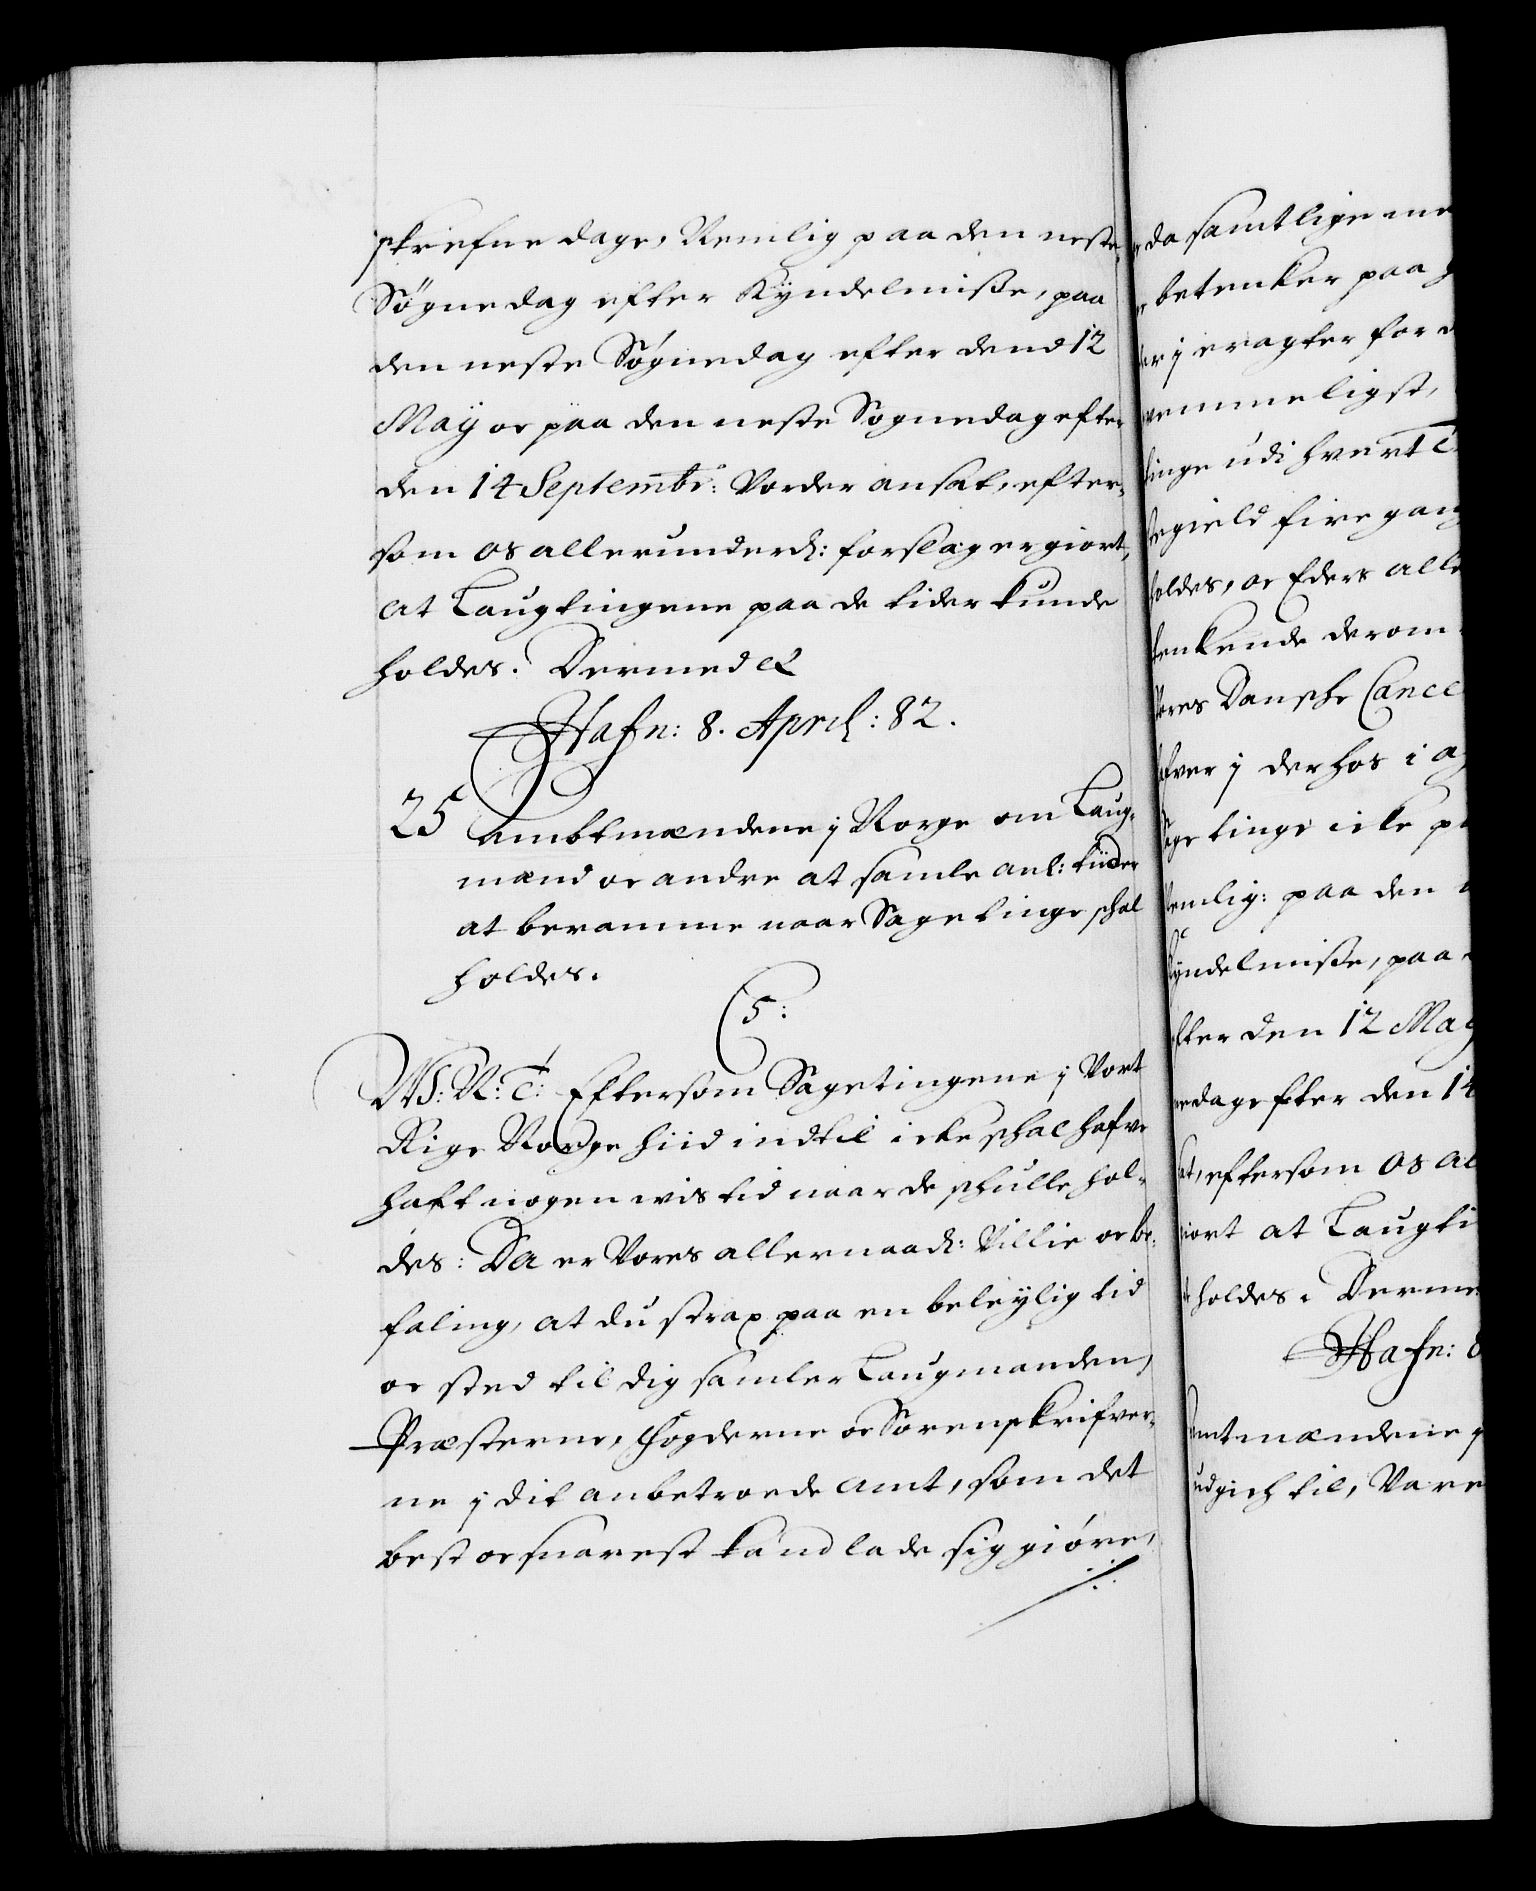 skrefne dage, Nemlig paa den neste
Søgnedag efter Kyndelmisse, paa
den neste Søgnedag efter dend 12
Maÿ oc paa den neste Søgnedag efter
den 14 Septembr: Vorder ansat, efter-
som os allerunderd: forslag er giort,
at Laugtingene paa de tider kunde
holdes. Dermed etc
Hafn: 8. April: 82.
25 Ambtmændene j Norge om Laug-
mænd oc andre at samle anl: tiider
at beramme naar Sagetinge schal
holdes.
C5:
V S: N: T: Eftersom Sagetingene j Vort
Rige Norge hiid indtil icke schal hafve
haft nogen vis tid naar de schulle hol-
des: Da er Vores allernaad: Villie oc be-
faling, at du strax paa en beleÿlig tid
oc sted til dig samler Laugmanden,
Præsterne, Fhogderne oc Sorenskrifver-
ne j dit anbetroede amt, som det
best oc snarest kand lade sig giøre,
da samtlige
betenker paa
j eragter for
tinge udi hvert
fire gang
holdes, oc Eders
derom
Vores Dansche Cance
j derhos i
tinge icke
Nemlig: paa den
Kyndelmisse, paa
efter den 12 Maÿ
dag efter den 14
eftersom os al
giort at Laugti
holdes. Derme
Hafn: 8
Amtmændene
til, Vare